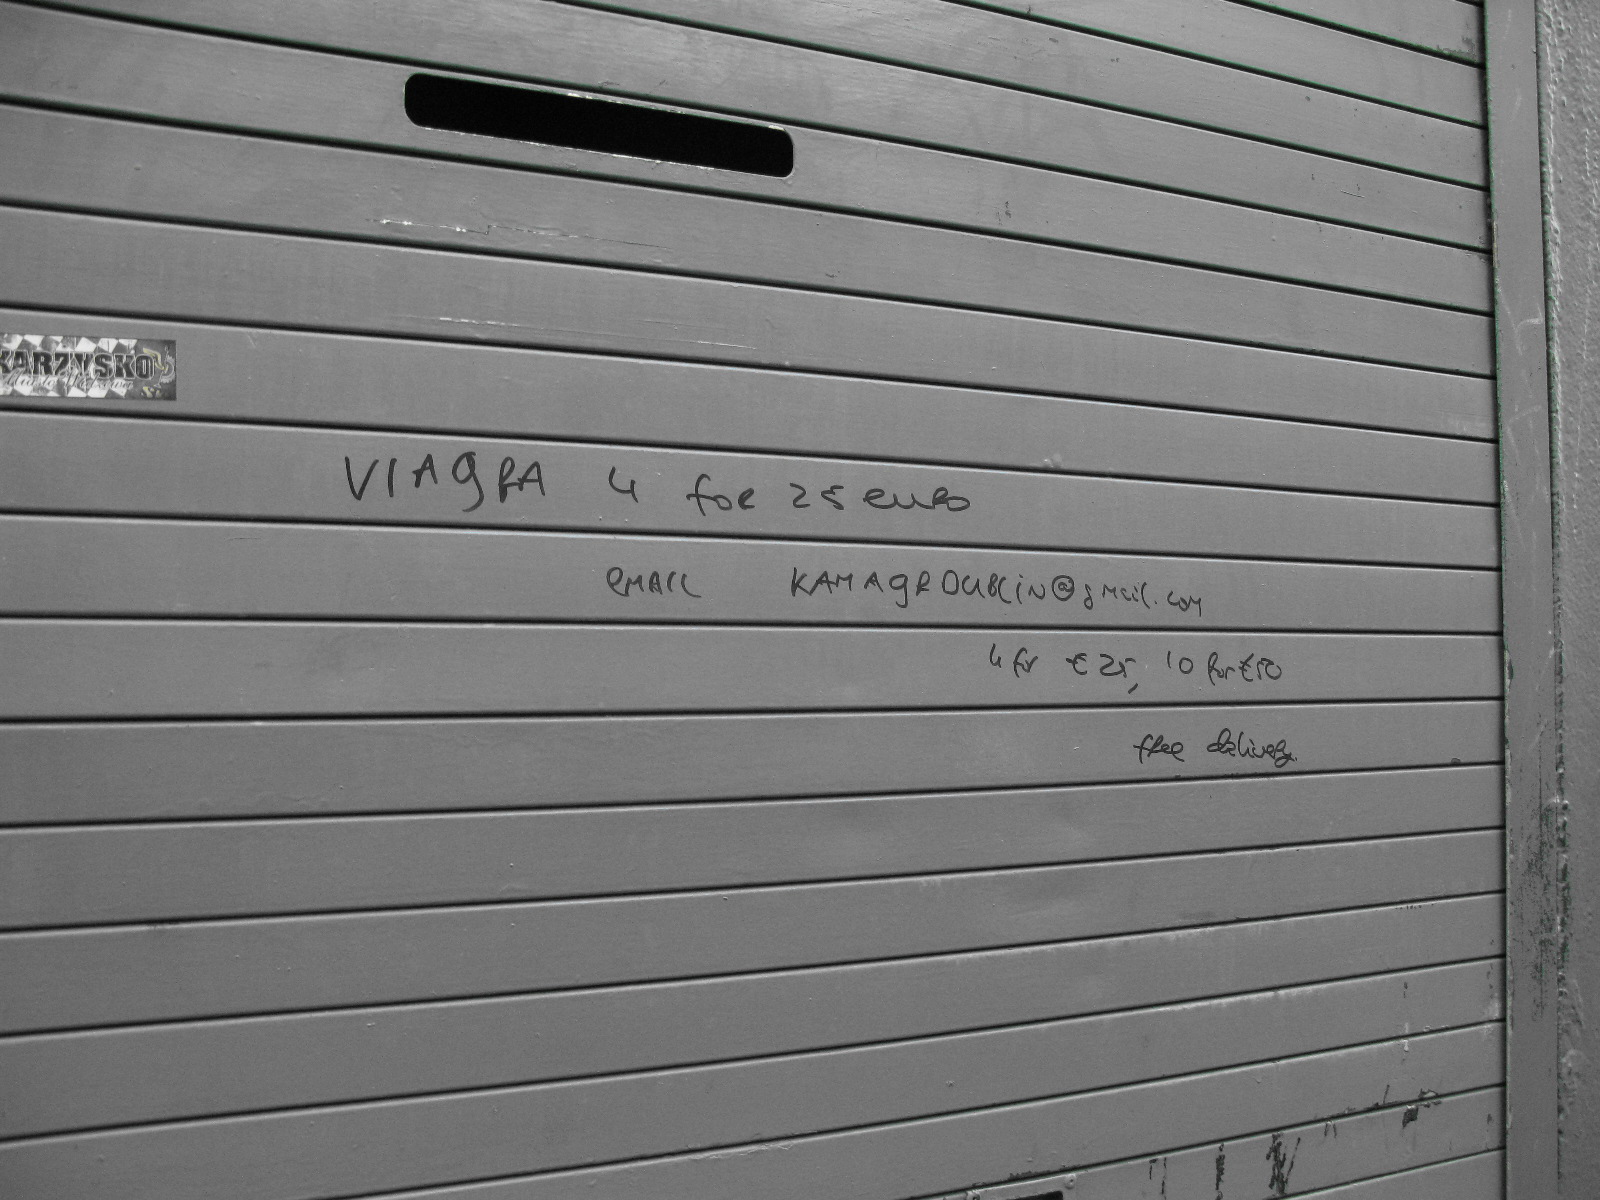 KARZYSKO
VIAGRA 4 for 25 euro
EMAIL KAMAGRDUBLiN@gmail.com
4 for €25, 10 for €50
free delivery